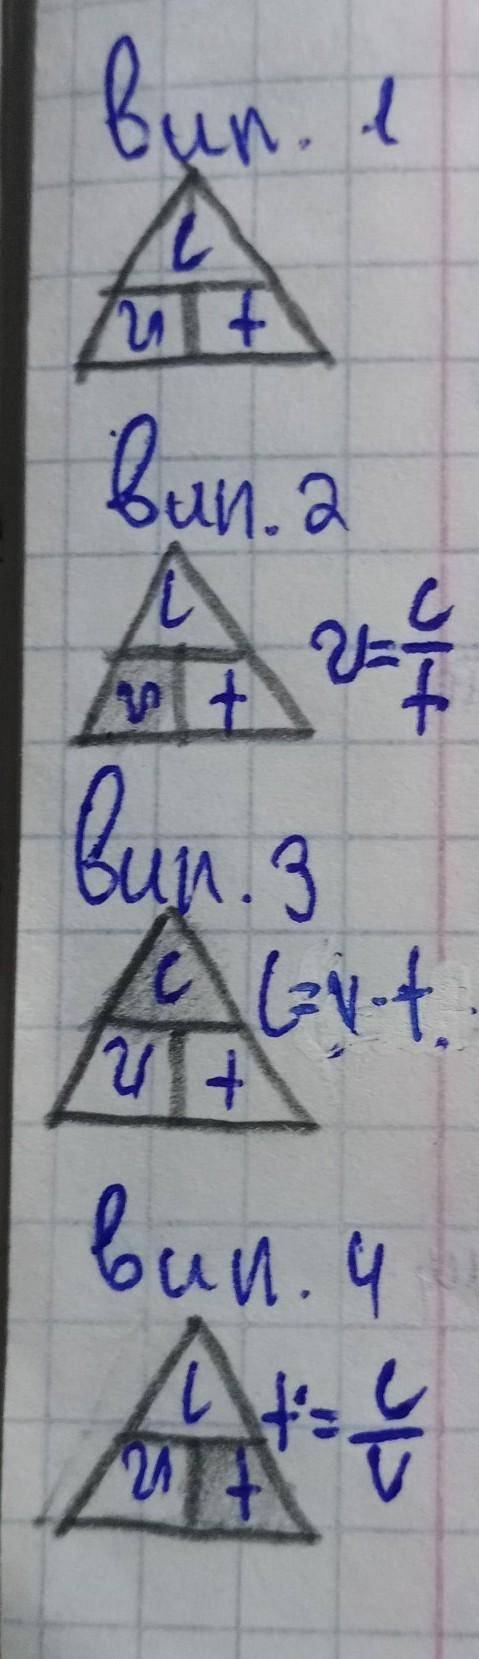 вип. 1
с
v t
вип. 2
с
v t
v = с/t
вип. 3
с
v t
с = v · t.
вип. 4
с
v t
t = с/v